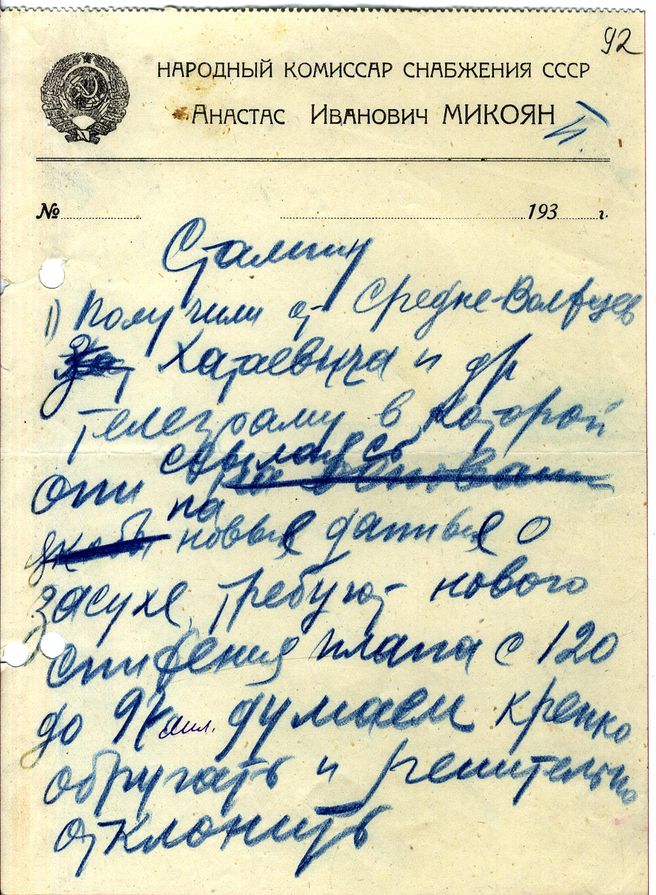 92
НАРОДНЫЙ КОМИССАР СНАБЖЕНИЯ СССР
Анастас Иванович МИКОЯН
№ 193 г.
Сталину
1) Получили от Средне-Волжцев
Хатаевича и др
телеграму в которой
они ссылаясь
на новые данные о
засухе, требуют нового
снижения плана с 120
до 94 мил. думаем крепко
обругать и решительно
отклонить